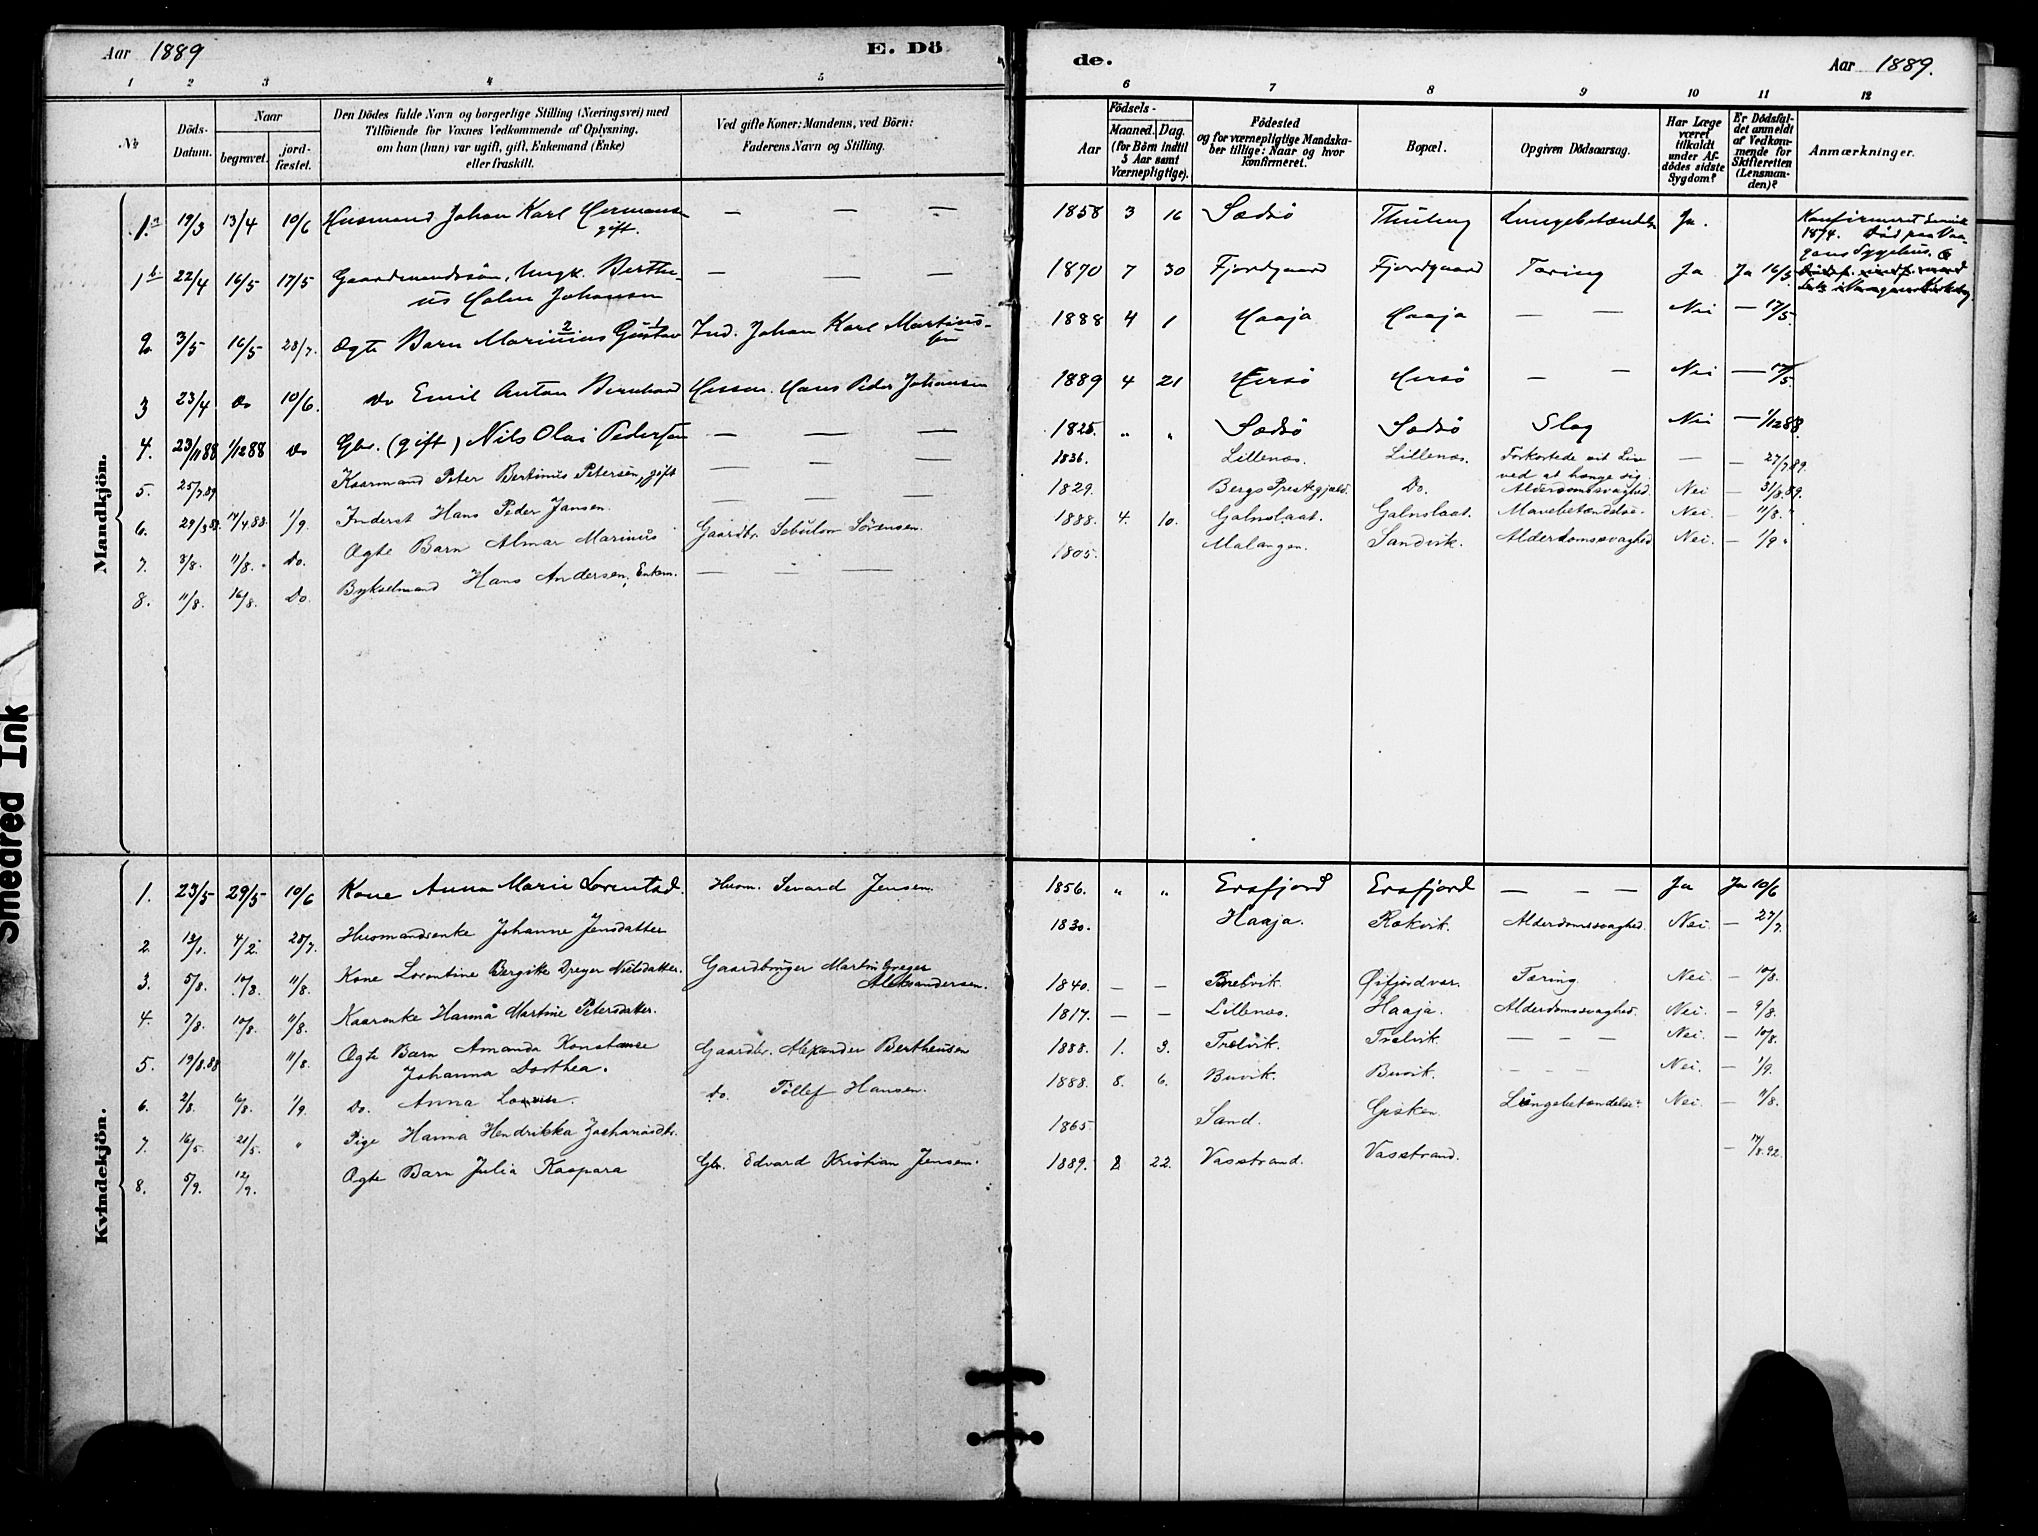 Aar 1889
E. Dö
1 2 3 4 5
№
Döds-
Datum.
Naar
begravet.
jord-
fæstet.
Den Dödes fulde Navn og borgerlige Stilling (Næringsvei) med
Tilföiende for Voxnes Vedkommende af Oplysning.
om han (hun) var ugift, gift, Enkemand (Enke)
eller fraskilt.
Ved gifte Koner: Mandens, ved Börn:
Faderens Navn og Stilling.
Mandkjön.
1.a 19/3 13/4 10/6 Husmand Johan Karl Hermans- — — —
gift.
1b 22/4 16/5 17/5 Gaardmandssön, Ungk. Berthe- — — —
us Johansen
2. 3/5 16/5 28/7. Ægte Barn Marinius Gustav Ind. Johan Karl Martins-
sen
3 23/4 do 10/6. do Emil Anton Bernhard Hans Peder Johansen
4. 23/11 88 1/12 88 do Gbr. (gift) Nils Olai Pedersen — — —
5. 25/7.89 Kaarmand Peter Bertinus Petersen, gift — — —
6. 29/3 88 14/4.88. 1/9. Inderst Hans Peder Jansen. — — —
7. 8/8. 11/8. Do. Ægte Barn Almar Marinus Gaardbr. Sebulon Sörensen.
8. 11/8. 16/8. Do. Bykselmand Hans Andersen, Enkem. — — —
Kvindekjön.
1. 23/5 29/5 10/6 Kone Anna Marie Lorentsd. Husm. Sevard Jensen.
2. 4/2. 28/7. Husmandsenke Johanne Jensdatter
3. 5/8. 10/8. 11/8. Kone Lorentine Bergitte Dreyer Nielsdatter. Gaardbruger Martin Greger
Aleksandersen.
4. 7/8. 10/8. 11/8. Kaarenke Hanna Martine Petersdatter.
5. 19/8.88 11/8. Ægte Barn Amanda Konstanse Gaardbr. Alexander Bertheusen
Johanna Dorthea.
6. 2/8. 6/8. 1/9. Do. Anna do. Töllef Hansen.
7. 16/5. 21/5. " Pige Hanna Hendrikka
8. 5/9. 12/9. Ægte Barn Julia Kaspara Gbr. Edvard Kristian Jensen.
de.
Aar 1889.
6 7 8 9 10 11 12
Födsels-
Aar
Maaned. Dag.
(for Börn indtil
5 Aar samt
Værnepligtige).
Födested
og for værnepligtige Mandska-
ber tillige: Naar og hvor
konfirmeret.
Bopæl.
Opgiven Dödsaarsag.
Har Læge
været
tilkaldt
under Af-
dödes sidste
Sygdom?
Er Dödsfal-
det anmeldt
af Vedkom-
mende for
Skifteretten
(Lensman-
den)?
Anmærkninger.
1858 3 16 Sædsö Lungebetændelse Ja. Konfirmeret
1874. Död paa Vaa-
gans Sygehus.
1870 7 30 Fjordgaard Fjordgaard Tæring Ja Ja 16/5
1888 4 1 Haaja Haaja — — Nei — 17/5.
1889 4 21 Hersö Hersö — — Nei — 17/5
1825. " " Sædsö Sædsö Slag Nei — 1/12 88.
1836. Lillenæs. Lillenæs. Forkortede sit Liv — — 27/7 89.
ved at hænge sig.
1829. Bergs Prestegjæld. Do. Alderdomssvaghed. Nei — 31/8.89.
1888. 4. 10. Galnslaat. Galnslaat. Mavebetændelse. Nei. — 11/8. "
1805. Malangen. Sandvik. Alderdomssvaghed Nei. — 1/9 "
1856. " " Ersfjord Ersfjord — — — Ja Ja 10/6
1830. Haaja. Rakvik. Alderdomssvaghed. Nei. — 27/7.
1840. — — Trælvik. Öifjordvær. Tæring. Nei — 10/8.
1817. — — Lillenæs. Haaja. Alderdomssvaghed. Nei. — 9/8.
1888. 1. 3. Trælvik. Trælvik. — — — Nei — 10/8.
1888. 8. 6. Buvik. Buvik. Nei. — 1/9.
1865 Sand. Gisken. Lungebetændelse. Nei. — 11/8.
1889. 8 22. Vasstrand. Vasstrand. — 14/8.92.
Smeared Ink